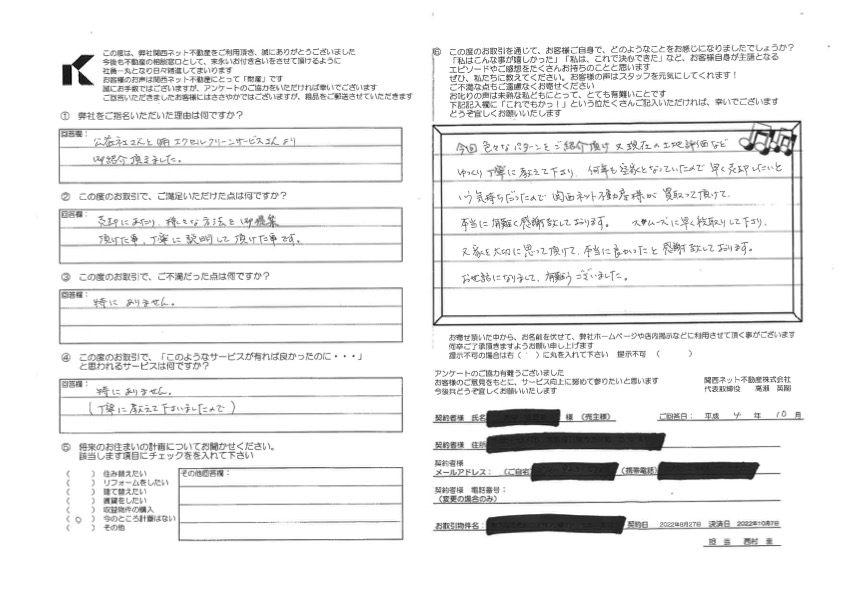 この度は、弊社関西ネット不動産をご利用頂き、誠にありがとうございました
今後も不動産の相談窓口として、末永いお付き合いをさせて頂けるように
社員一丸となり日々精進してまいります
お客様のお声は関西ネット不動産にとって「財産」です
誠にお手数ではございますが、アンケートのご協力をいただければ幸いでございます
ご回答いただきましたお客様にはささやかではございますが、粗品をご郵送させていただきます
① 弊社をご指名いただいた理由は何ですか？
回答欄：
エクセルクリーンサービスさんより
御紹介頂きました。
② この度のお取引で、ご満足いただけた点は何ですか？
回答欄：
売却にあたり、様々な方法を御提案
頂けた事、丁寧に説明して頂けた事です。
③ この度のお取引で、ご不満だった点は何ですか？
回答欄：
特にありません。
④ この度のお取引で、「このようなサービスが有れば良かったのに・・・」
と思われるサービスは何ですか？
回答欄：
特にありません。
（丁寧に教えて下さいましたので）
⑤ 将来のお住まいの計画についてお聞かせください。
該当します項目にチェックを入れて下さい
（ ） 住み替えたい
（ ） リフォームをしたい
（ ） 建て替えたい
（ ） 賃貸をしたい
（ ） 収益物件の購入
（ ○ ） 今のところ計画はない
（ ） その他
その他回答欄：
⑥ この度のお取引を通じて、お客様ご自身で、どのようなことをお感じになりましたでしょうか？
「私はこんな事が嬉しかった」「私は、これで決心できた」など、お客様自身が主語となる
エピソードやご感想をたくさんお持ちのことと思います
ぜひ、私たちに教えてください。お客様の声はスタッフを元気にしてくれます！
ご不満な点もご遠慮なくお寄せください
お叱りの声は未熟な私どもにとって、とても有難いことです
下記記入欄に「これでもかっ！」という位たくさんご記入いただければ、幸いでございます
どうぞ宜しくお願いいたします
今回色々なパターンをご紹介頂け又現在の土地評価など
ゆっくり丁寧に教えて下さり、何年も空家となっていたので早く売却したいと
いう気持ちだったので関西ネット不動産様が買取って頂けて、
本当に有難く感謝致しております。 スムーズに早く段取りして下さり、
又家を大切に思って頂けて、本当に良かったと感謝致しております。
お世話になりまして、有難うございました。
お寄せ頂いた中から、お名前を伏せて、弊社ホームページや店内掲示などに利用させて頂く事がございます
何卒ご了承頂きますようお願い申し上げます
提示不可の場合は右（ ）に丸を入れて下さい 提示不可 （ ）
アンケートのご協力有難うございました
お客様のご意見をもとに、サービス向上に努めて参りたいと思います
今後共どうぞ宜しくお願いいたします
関西ネット不動産株式会社
代表取締役 高瀬 英剛
契約者様 氏名 様 （売主様） ご回答日： 平成 4 年 10 月
契約者様 住所
契約者様
メールアドレス： （ご自宅） （携帯電話）
契約者様 電話番号：
（変更の場合のみ）
お取引物件名： 契約日 2022年8月27日 決済日 2022年10月7日
担 当 西村 圭